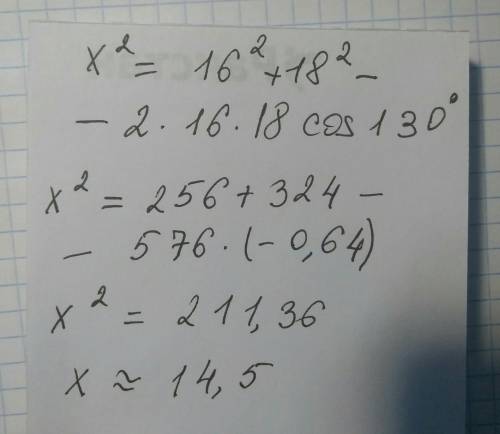 x² = 16² + 18² −
− 2 · 16 · 18 cos 130°
x² = 256 + 324 −
− 576 · (− 0,64)
x² = 211,36
x ≈ 14,5